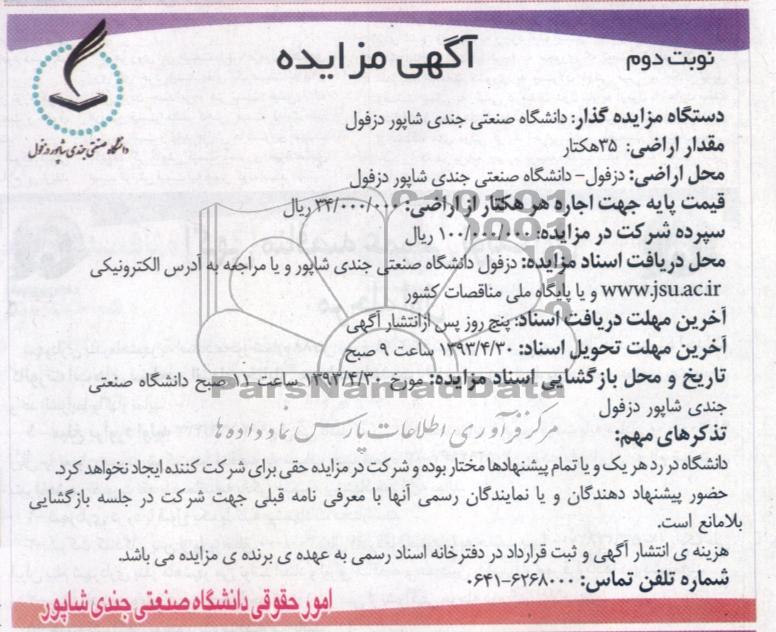 نوبت دوم
آگهی مزایده
دانشگاه صنعتی جندی شاپور دزفول
دستگاه مزایده گذار: دانشگاه صنعتی جندی شاپور دزفول
مقدار اراضی: ۳۵هکتار
محل اراضی: دزفول- دانشگاه صنعتی جندی شاپور دزفول
قیمت پایه جهت اجاره هر هکتار از اراضی: ۳۴/۰۰۰/۰۰۰ ریال
سپرده شرکت در مزایده: ۱۰۰/۰۰۰/۰۰۰ ریال
محل دریافت اسناد مزایده: دزفول دانشگاه صنعتی جندی شاپور و یا مراجعه به آدرس الکترونیکی
www.jsu.ac.ir و یا پایگاه ملی مناقصات کشور
آخرین مهلت دریافت اسناد: پنج روز پس ازانتشار آگهی
آخرین مهلت تحویل اسناد: ۱۳۹۳/۴/۳۰ ساعت ۹ صبح
تاریخ و محل بازگشایی اسناد مزایده: مورخ ۱۳۹۳/۴/۳۰ ساعت ۱۱ صبح دانشگاه صنعتی
جندی شاپور دزفول
ParsNamadData
مرکز فرآوری اطلاعات پارس نماد داده ها
تذکرهای مهم:
دانشگاه در رد هر یک و یا تمام پیشنهادها مختار بوده و شرکت در مزایده حقی برای شرکت کننده ایجاد نخواهد کرد.
حضور پیشنهاد دهندگان و یا نمایندگان رسمی آنها با معرفی نامه قبلی جهت شرکت در جلسه بازگشایی
بلامانع است.
هزینه ی انتشار آگهی و ثبت قرارداد در دفترخانه اسناد رسمی به عهده ی برنده ی مزایده می باشد.
شماره تلفن تماس: ۶۲۶۸۰۰۰-۰۶۴۱
امور حقوقی دانشگاه صنعتی جندی شاپور